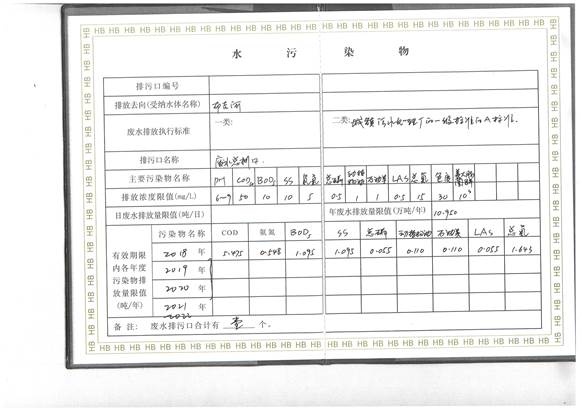 水 污 染 物
排污口编号
排放去向(受纳水体名称)
废水排放执行标准 一类: 二类: 城镇污水处理厂的一级标准的A标准.
排污口名称 废水总排口
主要污染物名称 PH COD BOD5 SS 氨氮 总磷 动植物油 石油类 LAS 总氮 色度
排放浓度限值(mg/L) 6-9 50 10 10 5 0.5 1 1 0.5 15 30
日废水排放量限值(吨/日) 年废水排放量限值(万吨/年) 10.950
有效期限内各年度污染物排放量限值(吨/年)
污染物名称 COD 氨氮 BOD5 SS 总磷 动植物油 石油类 LAS 总氮
2018 年 5.475 0.548 1.095 1.095 0.055 0.110 0.110 0.055 1.643
2019 年
2020 年
2021 年
2022
备 注: 废水排污口合计有 壹 个。